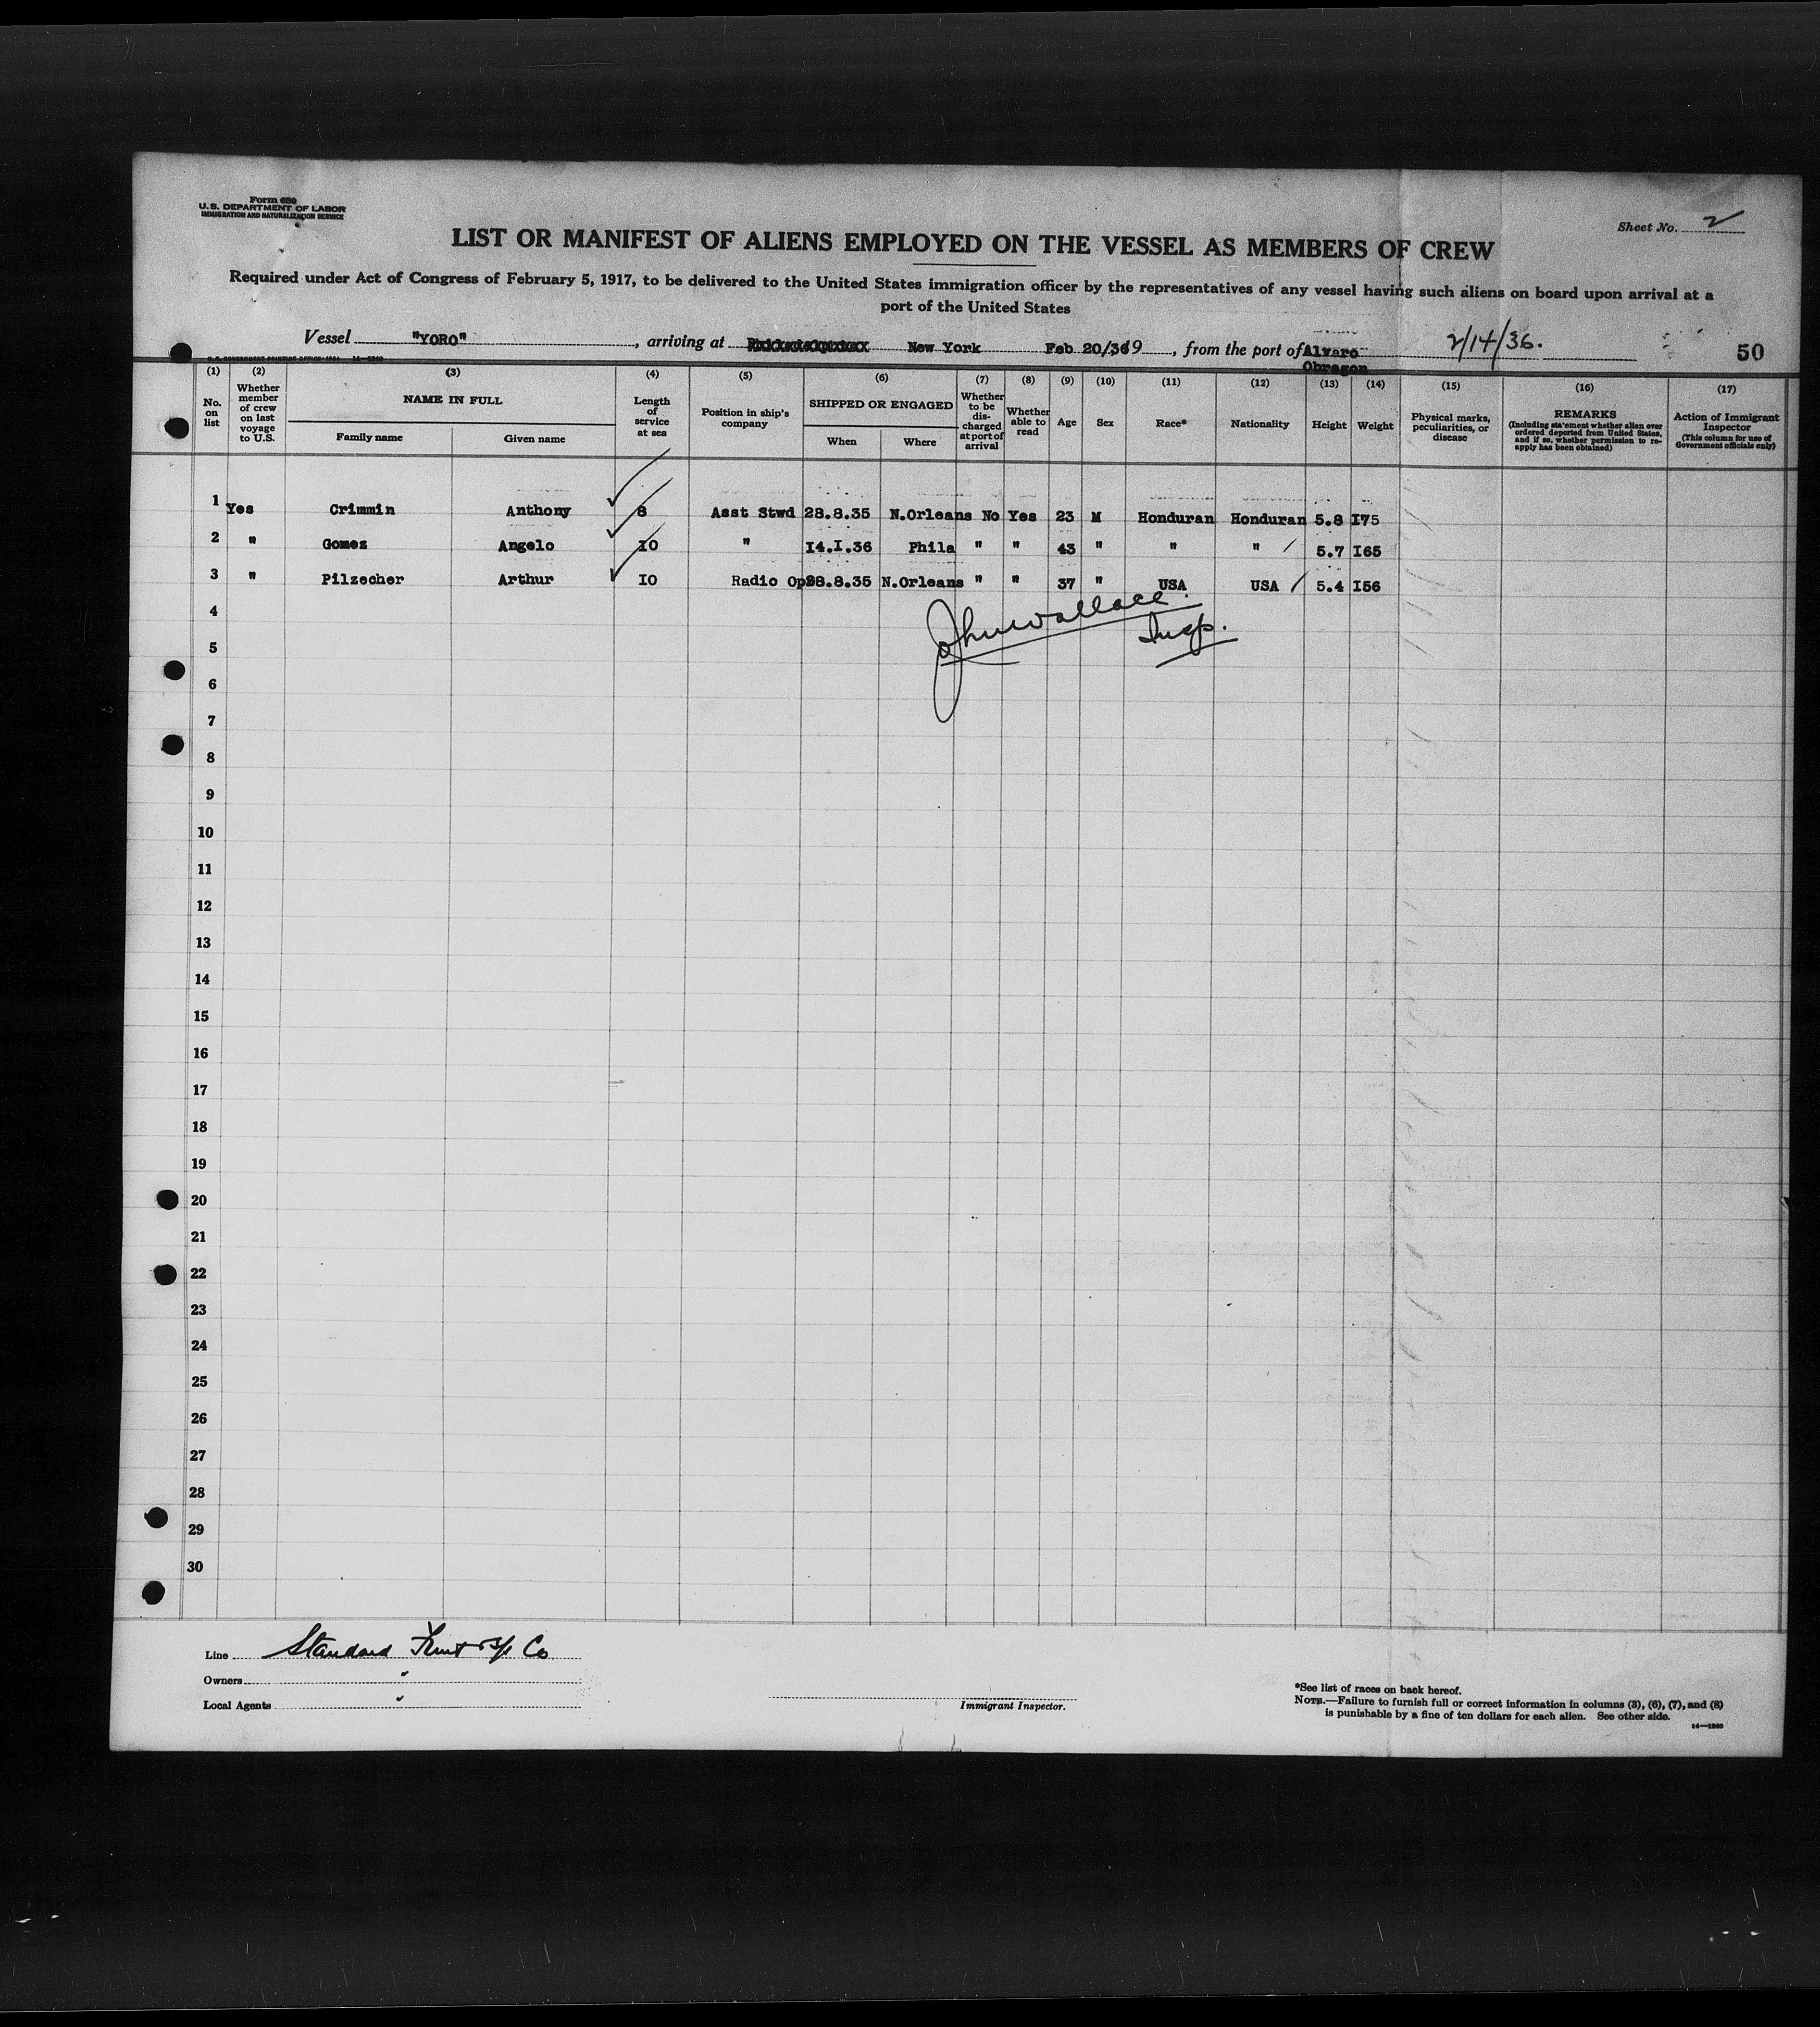 Form 680
U. S. DEPARTMENT OF LABOR
IMMIGRATION AND NATURALIZATION SERVICE
Sheet No. 2
LIST OR MANIFEST OF ALIENS EMPLOYED ON THE VESSEL AS MEMBERS OF CREW
Required under Act of Congress of February 5, 1917, to be delivered to the United States immigration officer by the representatives of any vessel having such aliens on board upon arrival at a
port of the United States
Vessel "YORO", arriving at New York Feb 20/36 19, from the port of Alvaro Obregon 2/14/36.
50
(1) (2) (3) (4) (5) (6) (7) (8) (9) (10) (11) (12) (13) (14) (15) (16) (17)
No. on list
Whether member of crew on last voyage to U.S.
NAME IN FULL
Family name
Given name
Length of service at sea
Position in ship's company
SHIPPED OR ENGAGED
When
Where
Whether to be discharged at port of arrival
Whether able to read
Age
Sex
Race*
Nationality
Height
Weight
Physical marks, peculiarities, or disease
REMARKS
(Including statement whether alien ever ordered deported from United States, and if so, whether permission to re-apply has been obtained)
Action of Immigrant Inspector
(This column for use of Government officials only)
1 Yes Crimmin Anthony 8 Asst Stwd 28.8.35 N.Orleans No Yes 23 M Honduran Honduran 5.8 I75
2 " Gomez Angelo IO " I4.I.36 Phila " " 43 " " " 5.7 I65
3 " Pilzecher Arthur IO Radio Op 28.8.35 N.Orleans " " 37 " USA USA 5.4 I56
John Wallace
Insp.
4
5
6
7
8
9
10
11
12
13
14
15
16
17
18
19
20
21
22
23
24
25
26
27
28
29
30
Line Standard Fruit S/S Co
Owners "
Local Agents "
Immigrant Inspector.
*See list of races on back hereof.
NOTE.—Failure to furnish full or correct information in columns (3), (6), (7), and (8)
is punishable by a fine of ten dollars for each alien. See other side.
14—1240